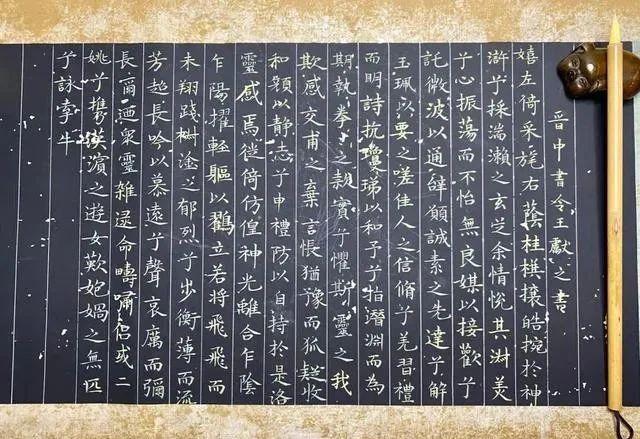 晉中書令王獻之書
嬉左倚采旄右蔭桂棋攘皓捥於神
滸兮採湍瀨之玄芝余情悅其淑美
兮心振蕩而不怡無良媒以接歡兮
託微波以通辭願誠素之先達兮解
玉珮以要之嗟佳人之信脩兮羌習禮
而明詩抗瓊珶以和予兮指潛淵而為
期執拳々之款實兮懼斯靈之我
欺感交甫之棄言悵猶豫而狐疑收
和顏以静志兮申禮防以自持於是洛
靈感焉徙倚仿偟神光離合乍陰
乍陽擢輕軀以鶴立若將飛飛而
未翔踐椒塗之郁烈兮步衡薄而流
芳超長吟以慕遠兮聲哀厲而彌
長爾迺衆靈雜遝命疇嘯侶或二
姚兮攜漢濱之遊女歎匏媧之無匹
兮詠牽牛